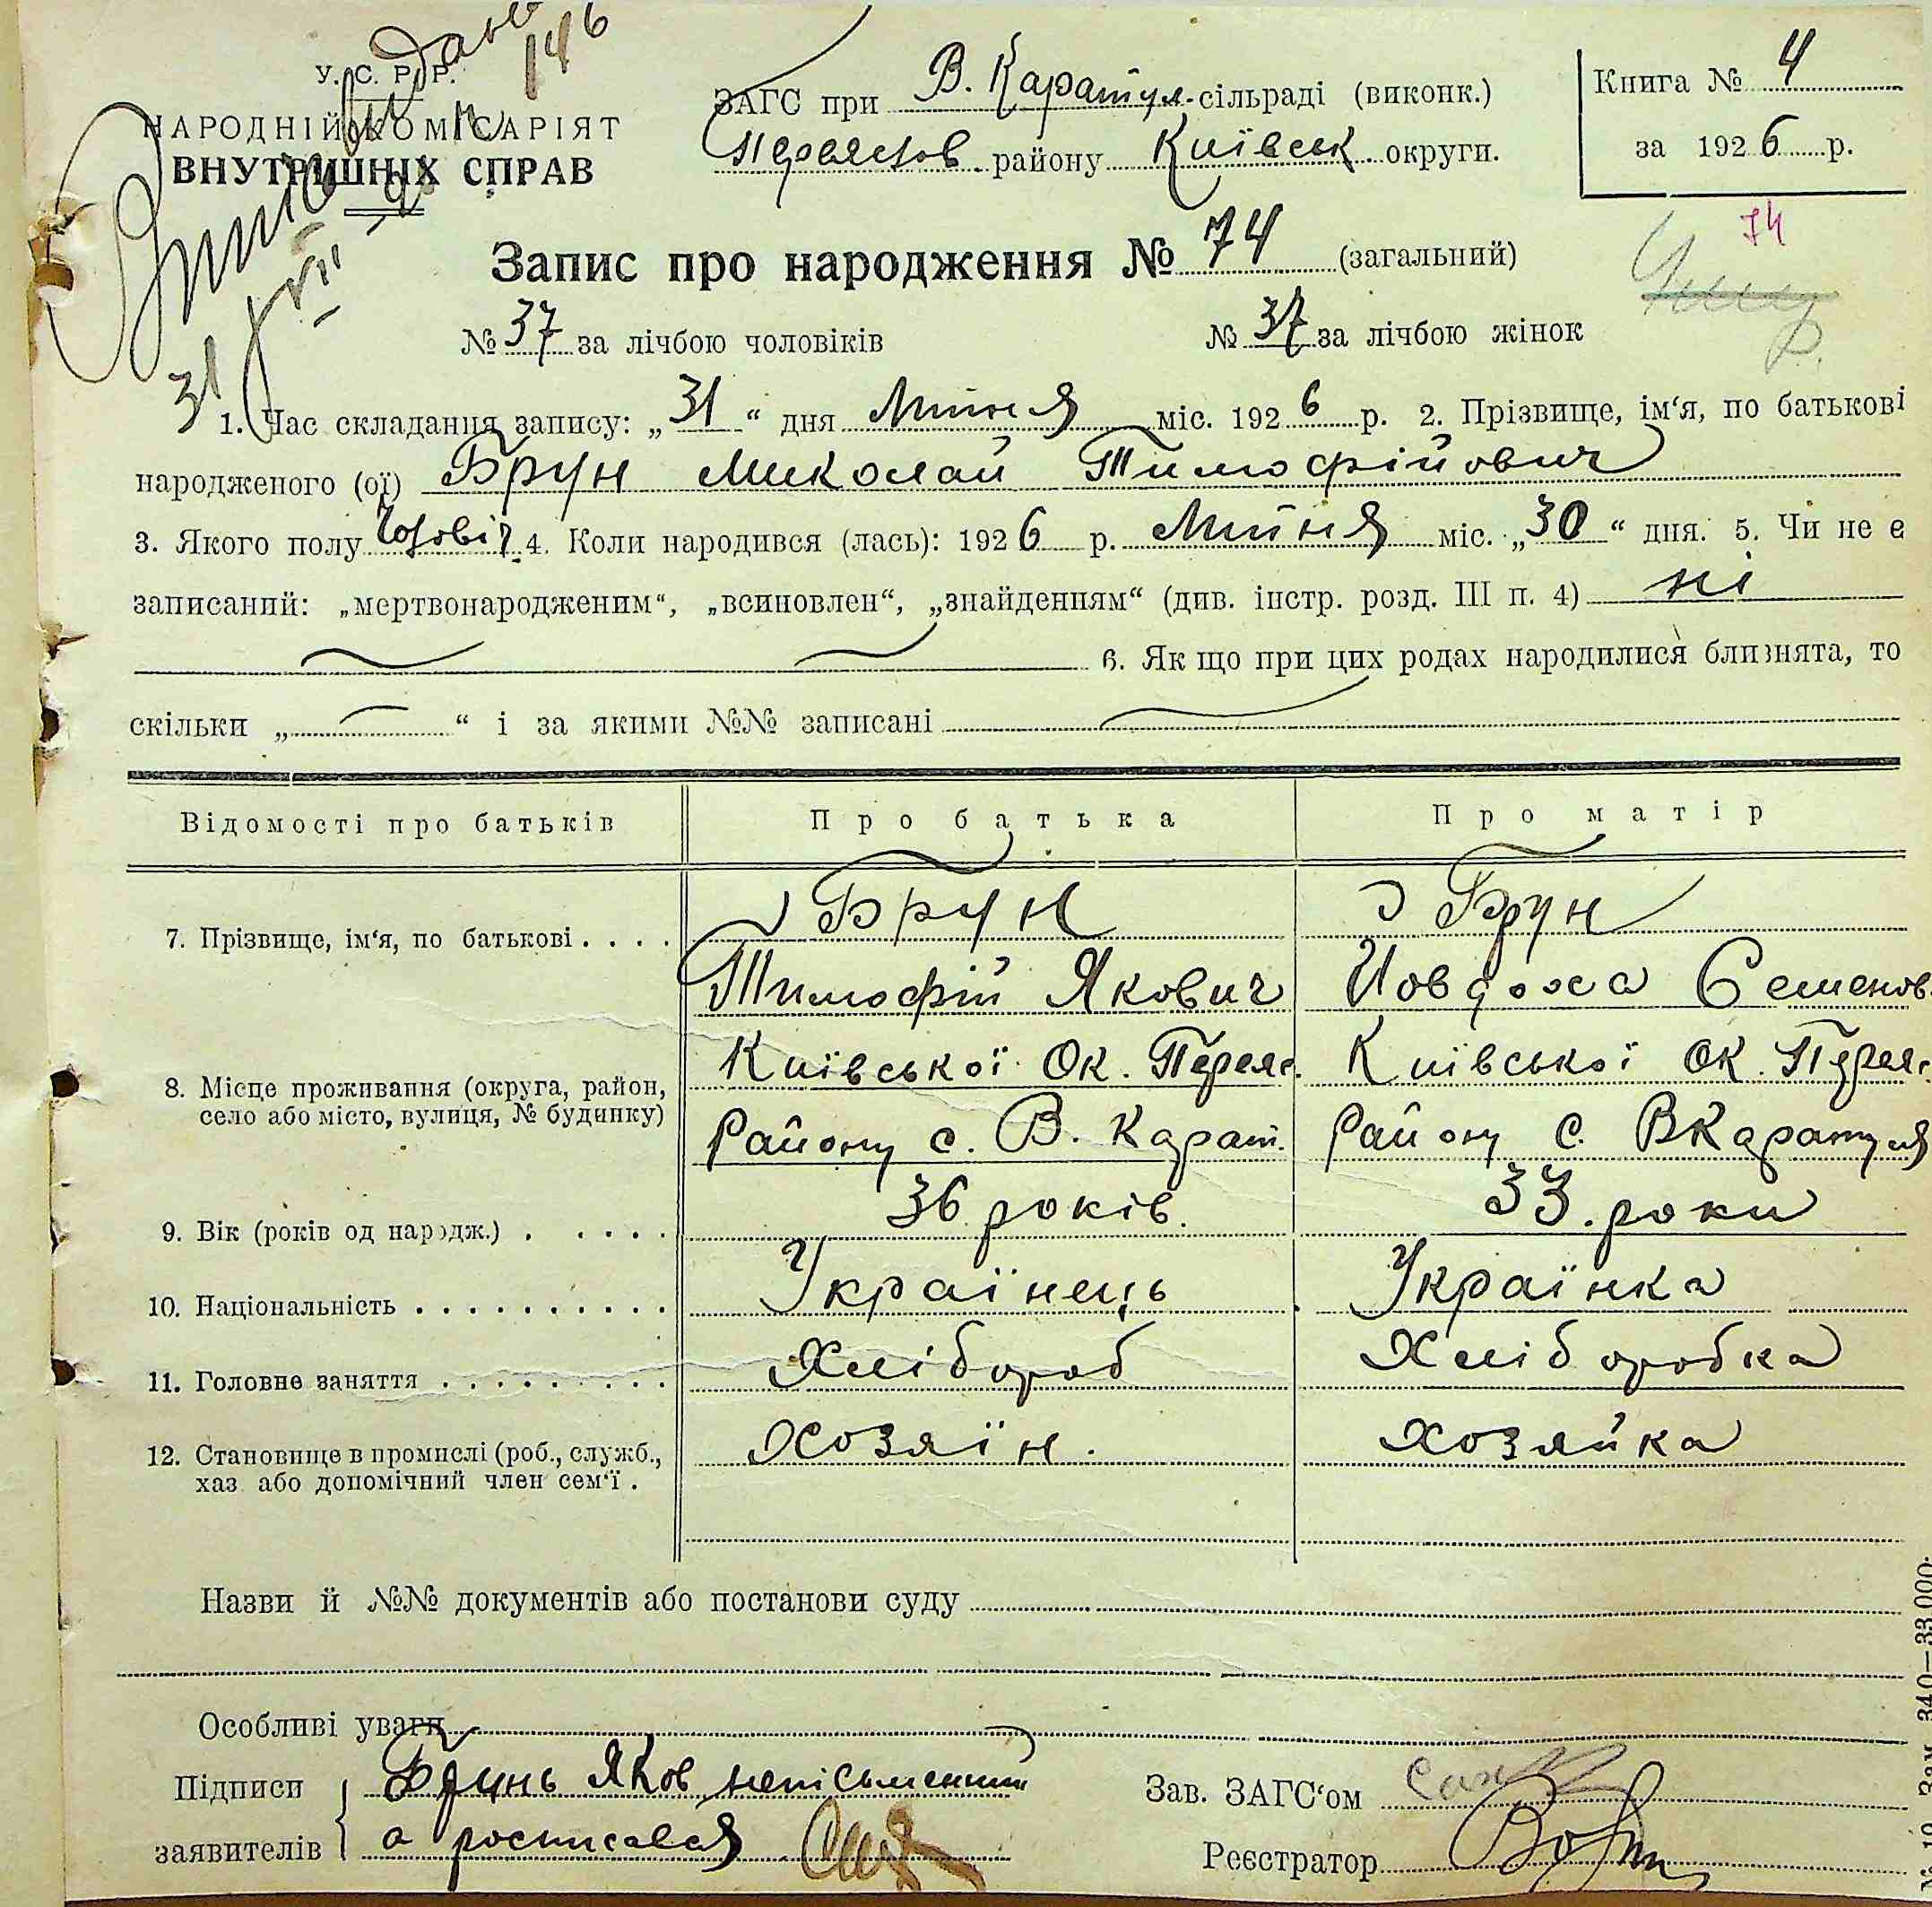 У. С. Р. Р.
НАРОДНІЙ КОМІСАРІЯТ
ВНУТРІШНІХ СПРАВ
146
31
ЗАГС при В. Каратул. сільраді (виконк.)
Переяслов. району Київськ. округи.
Книга № 4
за 1926 р.
74
Запис про народження № 74 (загальний)
№ 37 за лічбою чоловіків № 37 за лічбою жінок
1. Час складання запису: „31“ дня Липня міс. 1926 р. 2. Прізвище, ім‘я, по батькові
народженого (ої) Брун Миколай Тимофійович
3. Якого полу Чоловіч. 4. Коли народився (лась): 1926 р. Липня міс. „30“ дня. 5. Чи не є
записаний: „мертвонародженим“, „всиновлен“, „знайденням“ (див. інстр. розд. III п. 4) ні
6. Як що при цих родах народилися близнята, то
скільки „ “ і за якими №№ записані
Відомості про батьків Про батька Про матір
7. Прізвище, ім‘я, по батькові . . . . Брун Брун
Тимофій Якович Йовдоха Семенов.
8. Місце проживання (округа, район, Київської Ок. Переяс. Київської Ок. Переяс.
село або місто, вулиця, № будинку) Району с. В. Карат. Району с. В Каратуля
9. Вік (років од народж.) . . . . . 36 років. 33. роки
10. Національність . . . . . . . . . . Українець Українка
11. Головне заняття . . . . . . . . . Хлібороб Хліборобка
12. Становище в промислі (роб., служб., Хозяїн. хозяйка
хаз або допомічний член сем‘ї .
Назви й №№ документів або постанови суду
Особливі уваги
Підписи Брунь Яков неписьменний
заявителів а росписался
Зав. ЗАГС‘ом
Реєстратор
№ 10 Зам. 340—33.000.